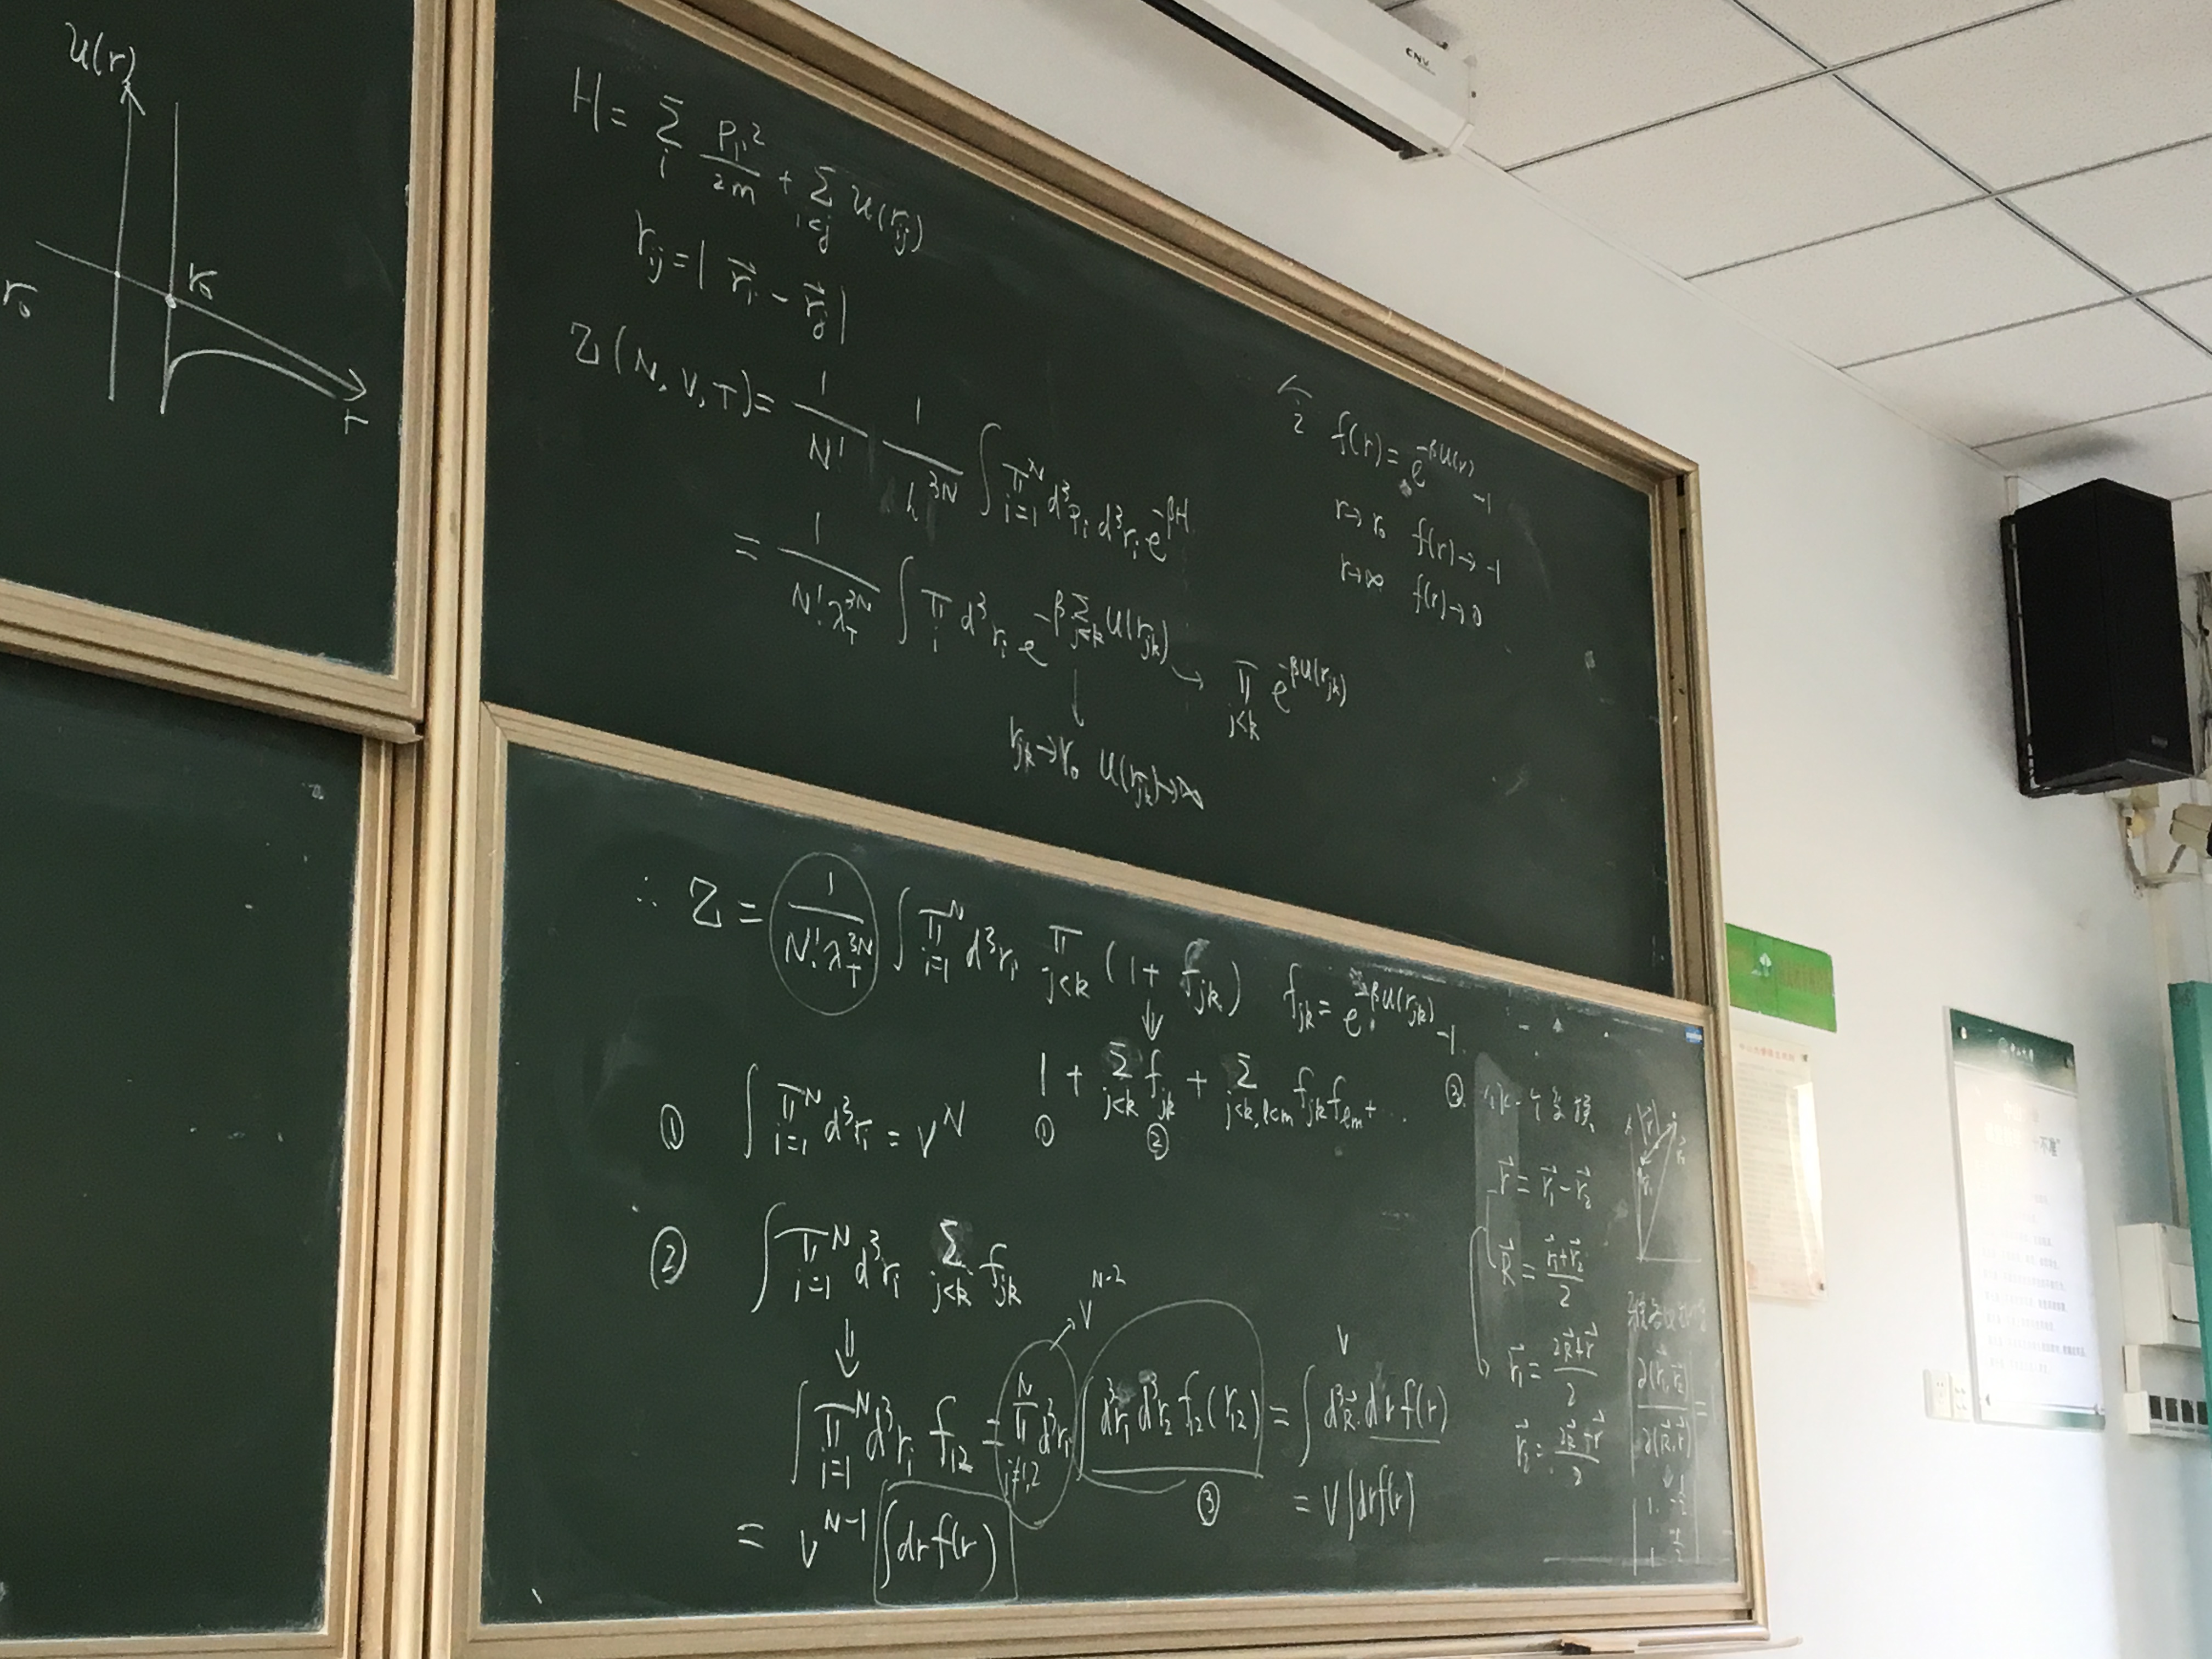 U(r)
r₀
r₀
r
H = Σ_i p_i²/2m + Σ_{i<j} U(r_ij)
r_ij = | r⃗_i - r⃗_j |
Z(N, V, T) = 1/N! 1/h^{3N} ∫ Π_{i=1}^N d³p_i d³r_i e^{-βH}
= 1/(N! λ_T^{3N}) ∫ Π_i d³r_i e^{-β Σ_{j<k} U(r_jk)} → Π_{j<k} e^{-βU(r_jk)}
↓
r_jk → r₀ U(r_jk) → ∞
令 f(r) = e^{-βU(r)} - 1
r → r₀ f(r) → -1
r → ∞ f(r) → 0
∴ Z = 1/(N! λ_T^{3N}) ∫ Π_{i=1}^N d³r_i Π_{j<k} (1 + f_jk) f_jk = e^{-βU(r_jk)} - 1
⇓
1 + Σ_{j<k} f_jk + Σ_{j<k, l<m} f_jk f_lm + ...
① ②
① ∫ Π_{i=1}^N d³r_i = V^N
② ∫ Π_{i=1}^N d³r_i Σ_{j<k} f_jk
⇓
→ V^{N-2}
V
∫ Π_{i=1}^N d³r_i f_12 = Π_{i≠1,2}^N d³r_i ∫ d³r_1 d³r_2 f_12(r_12) = ∫ d³R⃗ dr f(r)
③ = V∫dr f(r)
= V^{N-1} ∫dr f(r)
③ 做一个变换
r⃗ = r⃗_1 - r⃗_2
R⃗ = (r⃗_1 + r⃗_2)/2
r⃗_1 = (2R⃗ + r⃗)/2
∂(r⃗_1, r⃗_2)/∂(R⃗, r⃗) =
CNV